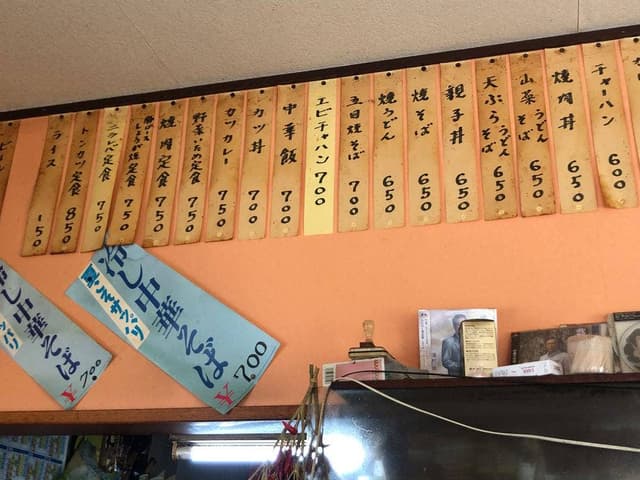 チャーハン 600
焼肉丼 650
山菜うどんそば 650
天ぷらうどんそば 650
親子丼 650
焼そば 650
焼うどん 650
五目焼そば 700
エビチャハン 700
中華飯 700
カツ丼 700
カツカレー 750
野菜いため定食 750
焼肉定食 750
しょうが焼定食 750
定食 750
トンカツ定食 850
ライス 150
冷し中華そば
¥700
冷し中華そば
¥700